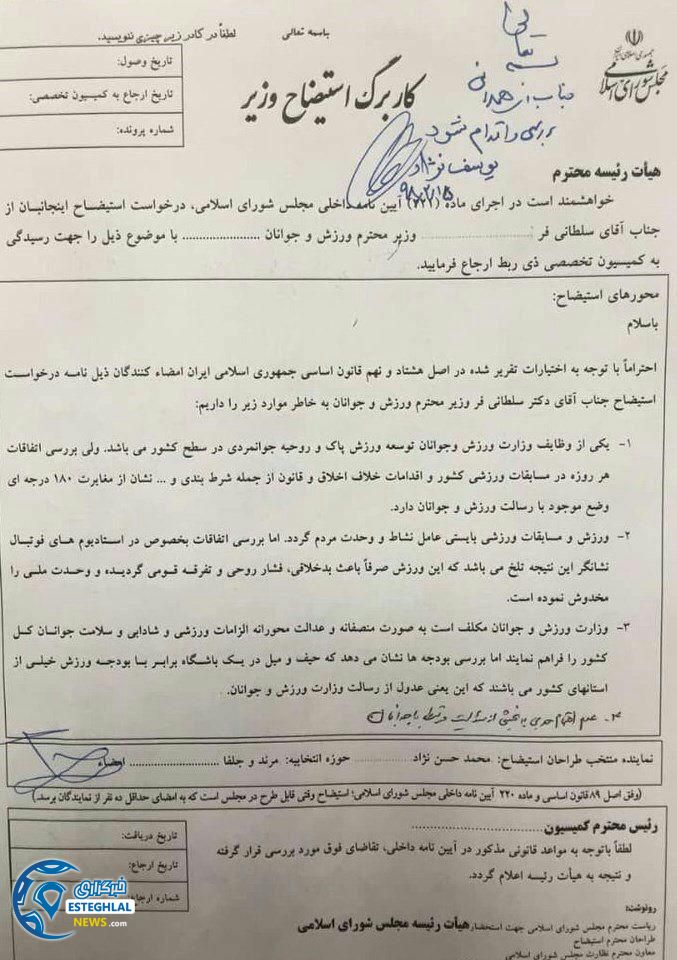 باسمه تعالی
لطفاً در کادر زیر چیزی ننویسید.
تاریخ وصول:
تاریخ ارجاع به کمیسیون تخصصی:
شماره پرونده:
جمهوری اسلامی ایران
مجلس شورای اسلامی
کاربرگ استیضاح وزیر
بررسی و اقدام شود
یوسف نژاد
۹۸/۲/۱۵
هیأت رئیسه محترم
خواهشمند است در اجرای ماده (۲۲۲) آیین نامه داخلی مجلس شورای اسلامی، درخواست استیضاح اینجانبان از
جناب آقای سلطانی فر .......................... وزیر محترم ورزش و جوانان ...................... با موضوع ذیل را جهت رسیدگی
به کمیسیون تخصصی ذی ربط ارجاع فرمایید.
محورهای استیضاح:
باسلام
احتراماً با توجه به اختیارات تفریر شده در اصل هشتاد و نهم قانون اساسی جمهوری اسلامی ایران امضاء کنندگان ذیل نامه درخواست
استیضاح جناب آقای دکتر سلطانی فر وزیر محترم ورزش و جوانان به خاطر موارد زیر را داریم:
۱- یکی از وظایف وزارت ورزش وجوانان توسعه ورزش پاک و روحیه جوانمردی در سطح کشور می باشد. ولی بررسی اتفاقات
هر روزه در مسابقات ورزشی کشور و اقدامات خلاف اخلاق و قانون از جمله شرط بندی و ... نشان از مغابرت ۱۸۰ درجه ای
وضع موجود با رسالت ورزش و جوانان دارد.
۲- ورزش و مسابقات ورزشی بایستی عامل نشاط و وحدت مردم گردد. اما بررسی اتفاقات بخصوص در استادیوم های فوتبال
نشانگر این نتیجه تلخ می باشد که این ورزش صرفاً باعث بدخلاقی، فشار روحی و تفرقه قومی گردیده و وحدت ملی را
مخدوش نموده است.
۳- وزارت ورزش و جوانان مکلف است به صورت منصفانه و عدالت محورانه الزامات ورزشی و شادابی و سلامت جوانان کل
کشور را فراهم نمایند اما بررسی بودجه ها نشان می دهد که حیف و میل در یک باشگاه برابر با بودجه ورزش خیلی از
استانهای کشور می باشند که این یعنی عدول از رسالت وزارت ورزش و جوانان.
۴- عدم اهتمام جدی به بخشی از رسالت مرتبط با جوانان
نماینده منتخب طراحان استیضاح: محمد حسن نژاد................ حوزه انتخابیه: مرند و جلفا ........................ امضاء
(وفق اصل ۸۹ قانون اساسی و ماده ۲۲۰ آیین نامه داخلی مجلس شورای اسلامی؛ استیضاح وقتی قابل طرح در مجلس است که به امضای حداقل ده نفر از نمایندگان برسد.)
رئیس محترم کمیسیون ................................
لطفاً باتوجه به مواعد قانونی مذکور در آیین نامه داخلی، تقاضای فوق مورد بررسی قرار گرفته
و نتیجه به هیأت رئیسه اعلام گردد.
تاریخ دریافت:
تاریخ ارجاع:
شماره ارجاع:
هیأت رئیسه مجلس شورای اسلامی
رونوشت:
ریاست محترم مجلس شورای اسلامی جهت استحضار
طراحان محترم استیضاح
معاون محترم نظارت مجلس شورای اسلامی
خبرگزاری
ESTEGHLAL
NEWS.com